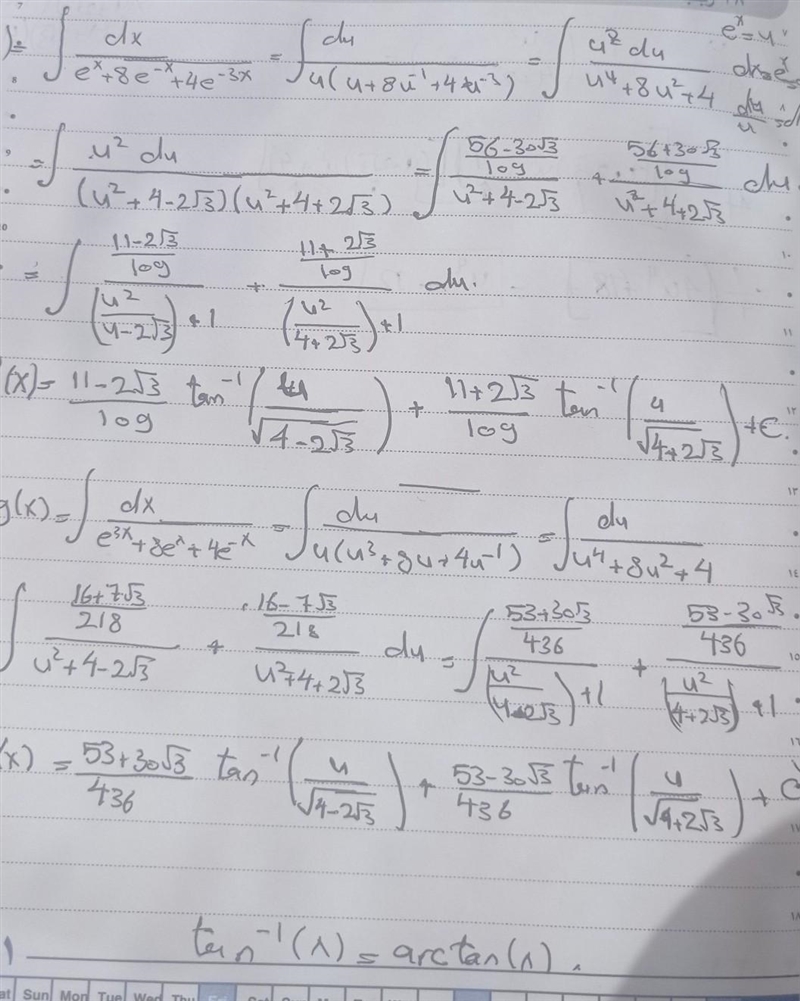 )= ∫ dx / (e^x + 8e^-x + 4e^-3x) = ∫ du / (u(u + 8u^-1 + 4u^-3)) = ∫ u^2 du / (u^4 + 8u^2 + 4) e^x = u
du/u
= ∫ u^2 du / ((u^2 + 4 - 2√3)(u^2 + 4 + 2√3)) = ∫ ((56 - 30√3)/109) / (u^2 + 4 - 2√3) + ((56 + 30√3)/109) / (u^2 + 4 + 2√3) du.
= ∫ ((11 - 2√3)/109) / ((u^2/(4 - 2√3)) + 1) + ((11 + 2√3)/109) / ((u^2/(4 + 2√3)) + 1) du.
(x) = (11 - 2√3)/109 tan^-1(u/√(4 - 2√3)) + (11 + 2√3)/109 tan^-1(u/√(4 + 2√3)) + C.
g(x) = ∫ dx / (e^3x + 8e^x + 4e^-x) = ∫ du / (u(u^3 + 8u + 4u^-1)) = ∫ du / (u^4 + 8u^2 + 4)
∫ ((16 + 7√3)/218) / (u^2 + 4 - 2√3) + ((16 - 7√3)/218) / (u^2 + 4 + 2√3) du = ∫ ((53 + 30√3)/436) / ((u^2/(4 - 2√3)) + 1) + ((53 - 30√3)/436) / ((u^2/(4 + 2√3)) + 1)
(x) = (53 + 30√3)/436 tan^-1(u/√(4 - 2√3)) + (53 - 30√3)/436 tan^-1(u/√(4 + 2√3)) + C
tan^-1(λ) = arctan(λ).
Sun Mon Tue Wed Thu